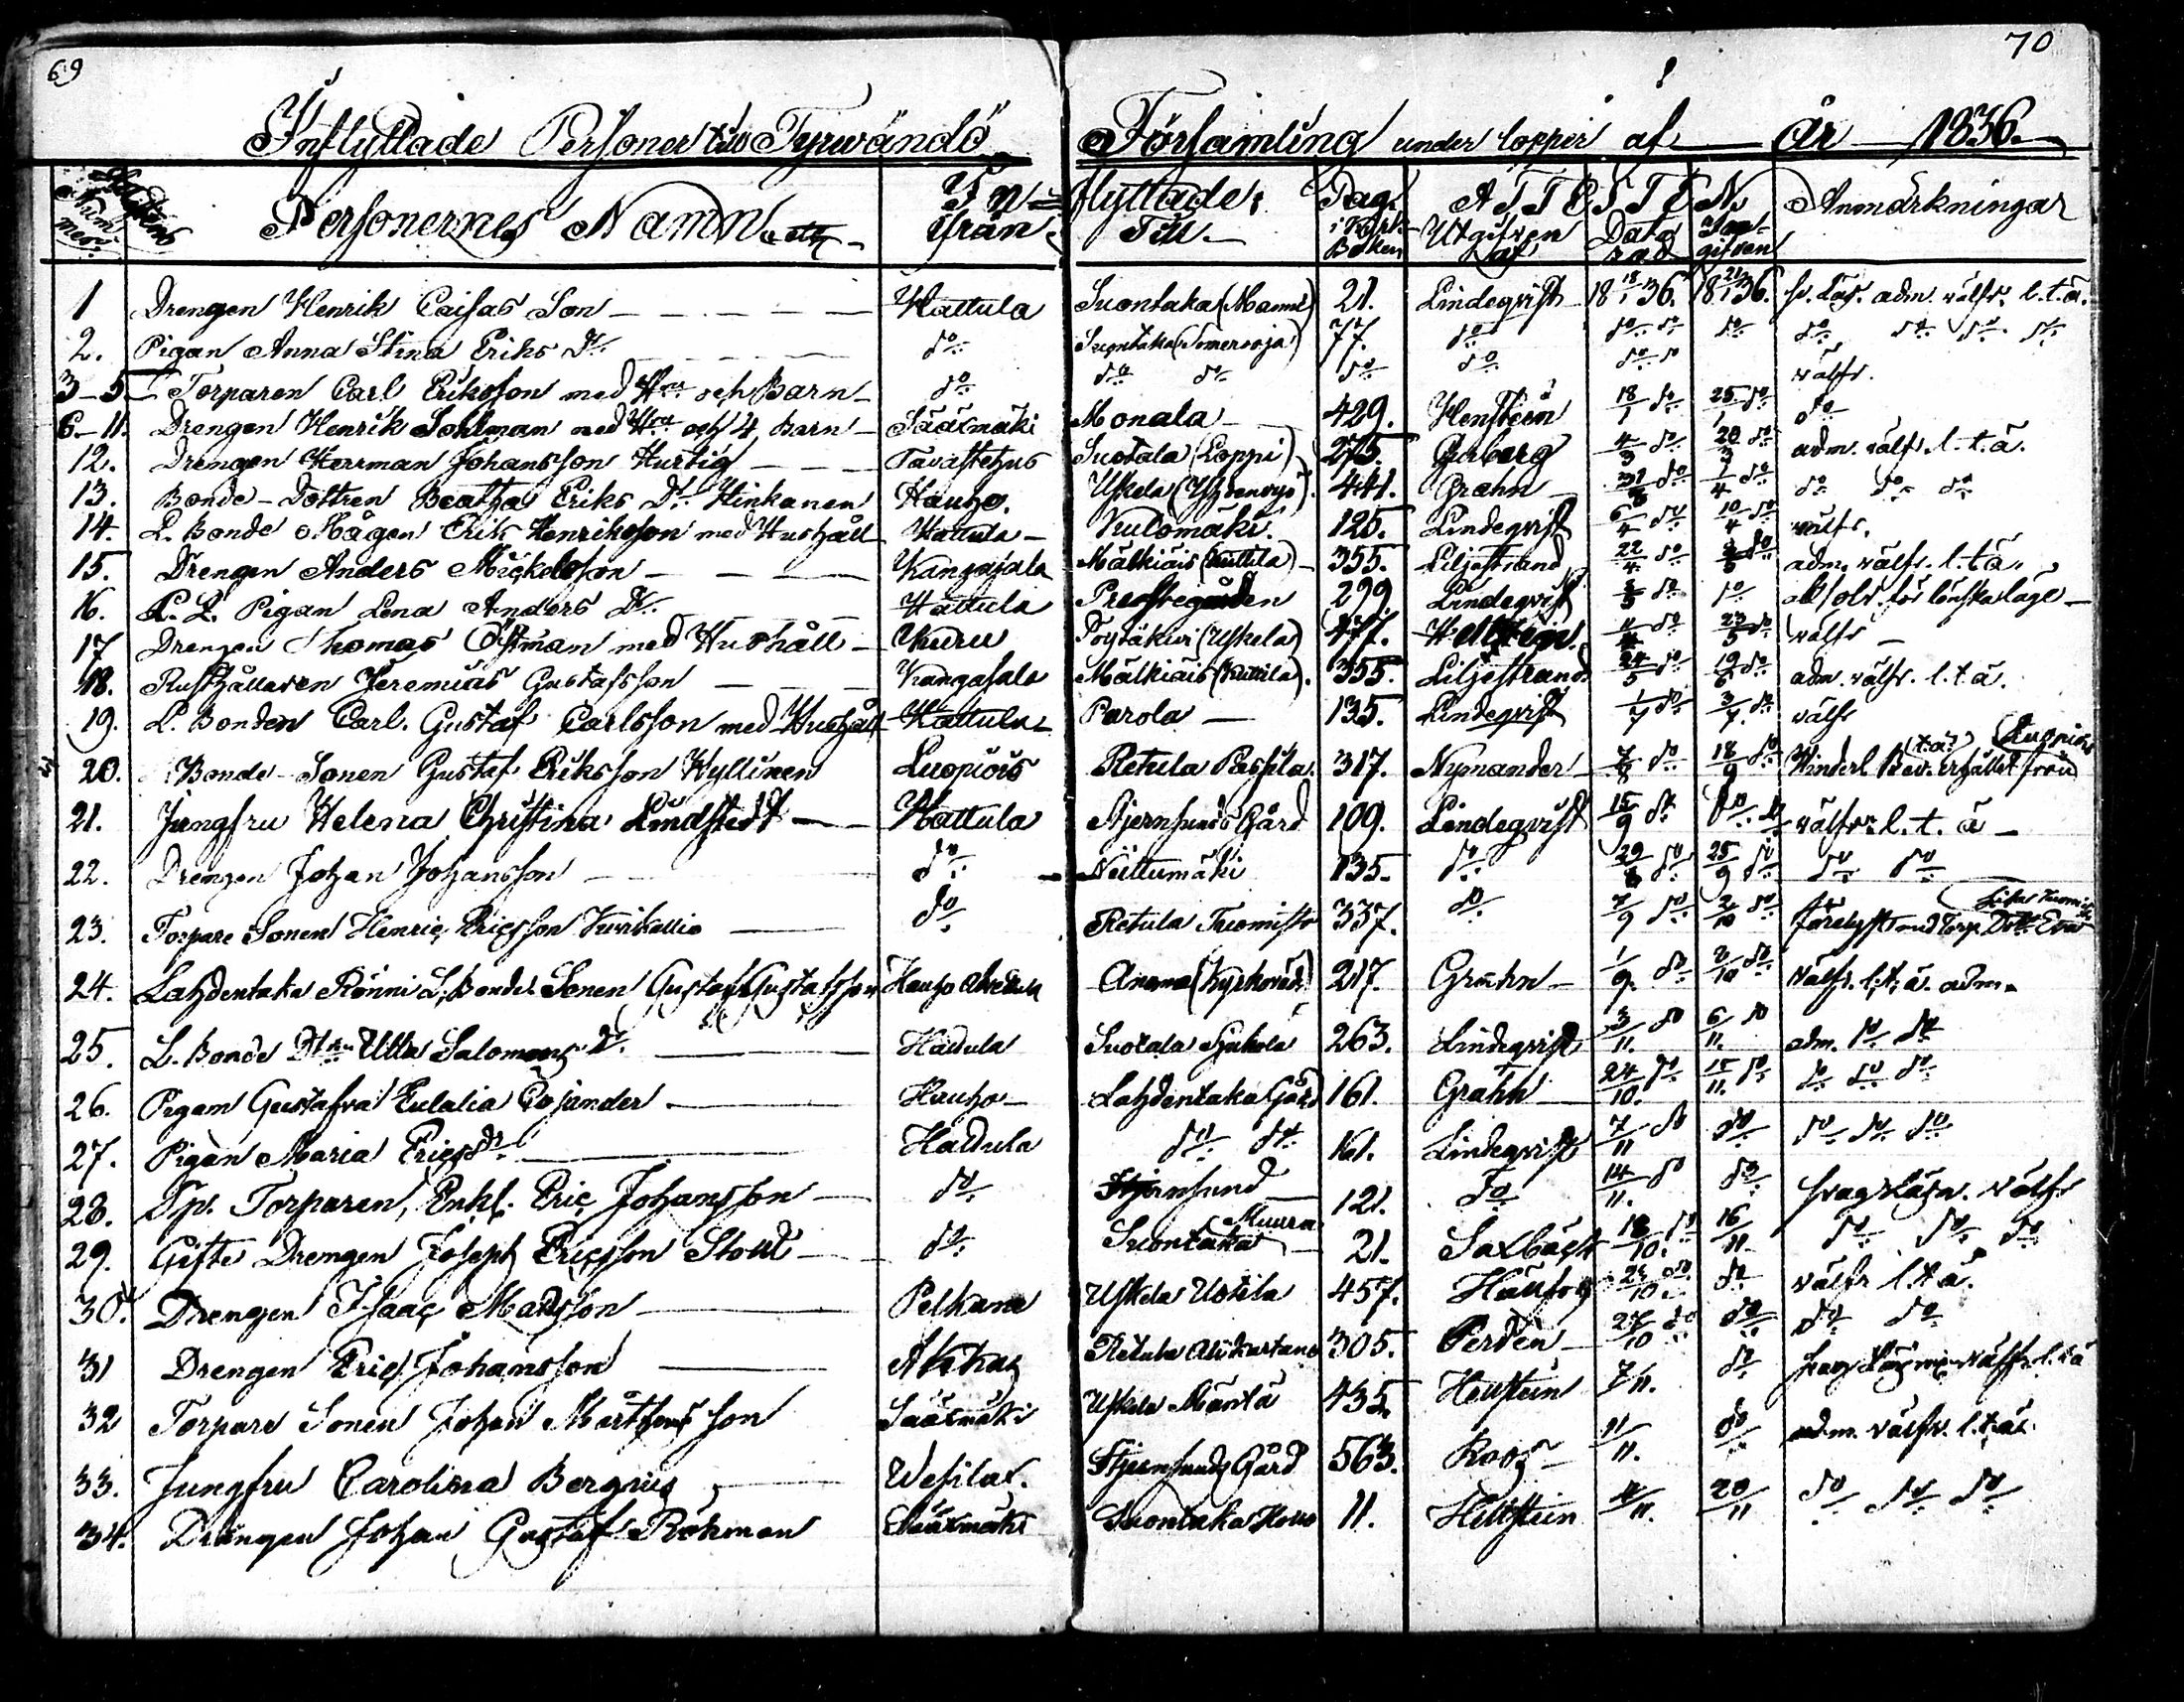 69
70
Inflyttade Personer till Tyrwändö Församling under loppet af år 1836.
Attestens Nummer Personernes Namn etc In= från flyttade: Till Pag. i Kyrk- Boken ATTESTEN Utgifven af Daterad Ingifven Anmärkningar
1 Drengen Henrik Caisas Son Hattula Suontaka (Manni) 21. Lindeqvist 18 18/1 36. 18 21/1 36. sv. läs. adm. välfr. l.t.ä.
2. Pigan Anna Stina Eriks Dr. do Suontaka (Somersoja) 77. do do do do do do do do
3-5 Torparen Carl Eriksson med Hru och Barn do do do do do do do välfr.
6-11. Drengen Henrik Sohlman med Hru och 4 Barn Sääxmäki Monala 429. Hellsteen 18/1 do 25/1 do do
12. Drengen Herrman Johansson Hurtig Tavastehus Suotala (Loppi) 275. 4/3 do 20/3 do adm. välfr. l.t.ä.
13. Bonde-Dottren Beatha Eriks Dr. Hinkanen Hauho. Uskela (Yhdensyö). 441. Grahn 31/3 do 7/4 do do do do
14. L. Bonde Mågen Erik Henriksson med Hushåll Hattula Kulomäki. 125. Lindeqvist 6/4 do 10/4 do välfr.
15. Drengen Anders Mickelsson Kangasala Mälkiäis (Kuttila) 355. Liljestrand 22/4 do do adm. välfr. l.t.ä.
16. L. L. Pigan Lena Anders Dr. Hattula Prestegården 299. Lindeqvist 3/5 do do absolv. för lönskaläge
17 Drengen Thomas Östman med Hushåll Kuru (Uskela) 477. do 23/5 do välfr
18. Rusthållaren Jeremias Gustafsson Kangasala Mälkiäis (Kuttila). 355. Liljestrand 24/5 do 19/6 do adm. välfr. l.t.ä.
19. L. Bonden Carl. Gustaf Carlsson med Hushåll Hattula Parola 135. Lindeqvist 1/7 do 3/7. do välfr
20. Bonde-Sonen Gustaf Eriksson Hyllinen Luopiois Retula Passila. 317. Nymander 7/8 do 18/9 do Hinderl. Bev. (t.ä) erhållet från Luopiois
21. Jungfru Helena Christina Lindstedt Hattula Stjernsunds Gård 109. Lindeqvist 15/9 do do do välfr. l. t. ä
22. Drengen Johan Johansson do Niittumäki 135. do 29/8 do 25/9 do do do
23. Torpare Sonen Henric Ericsson Kurikallio do Retula Tuomisto 337. do 7/9 do 2/10 do förelyst med Torp. Dott. Eva
24. Lahdentaka Rönni L. Bonde Sonen Gustaf Gustafsson Hauho Anomaa (Kyrkoväd.) 217. Grahn 1/9. do 2/10 do välfr. l.t.ä. adm.
25. L. Bonde Dr. Ulla Salomons Dr. Hattula Suotala Sjukola 263. Lindeqvist 3/11. do 6/11. do adm. do do
26. Pigan Gustafva Eulalia Cajander Hauho Lahdentaka Gård 161. Grahn 24/10. do 15/11. do do do do
27. Pigan Maria Ericsdr Hattula do do 161. Lindeqvist 7/11 do do do do do
28. Sp. Torparen, Enkl. Eric Johansson do Stjernsund 121. do 14/11. do do svag läsn. välfr
29. Gifte Drengen Joseph Ericsson Stolt do Suontaka Muurra 21. Saxbäck 18/10. do 16/11. do do do
30. Drengen Isaac Matsson Pelkane Uskela Uotila 457. 24/10. do do välfr l.t.ä.
31 Drengen Eric Johansson Akkas Retula Alikartano 305. Perden 27/10 do do do do
32 Torpare Sonen Johan Matthens son Sääxmäki Uskela Mäntä 435. Hellsteen 7/11. do
33. Jungfru Carolina Bergius Wesilax. Stjernsunds Gård 563. Roos 11/11. do adm. välfr. l.t.ä.
34. Drengen Johan Gustaf Rökman Sääxmäki Suontaka 11. Hellsteen 11/11. 20/11 do do do